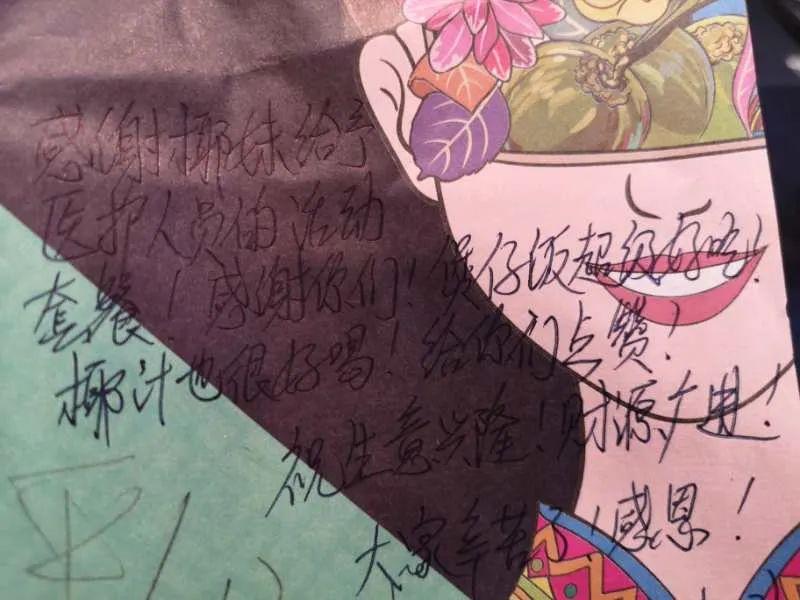 感谢椰妹给予
医护人员的活动
套餐！感谢你们！煲仔饭超级好吃！
椰汁也很好喝！给你们点赞！
祝生意兴隆！财源广进！
大家辛苦了！感恩！